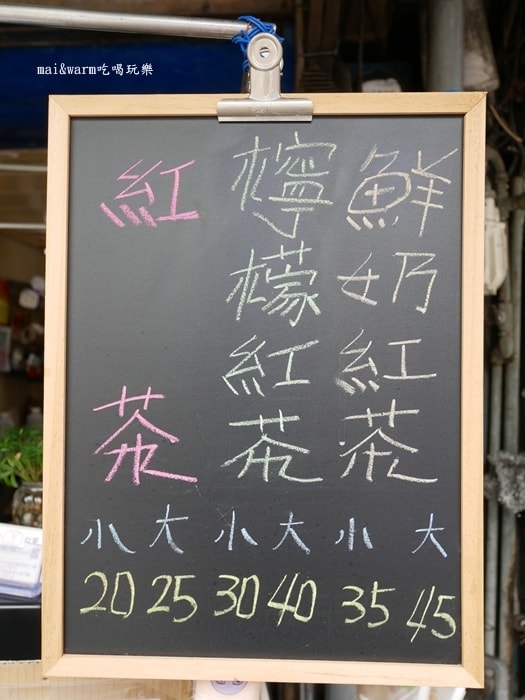 mai&warm吃喝玩樂
鮮奶紅茶
檸檬紅茶
紅茶
小 大 小 大 小 大
20 25 30 40 35 45